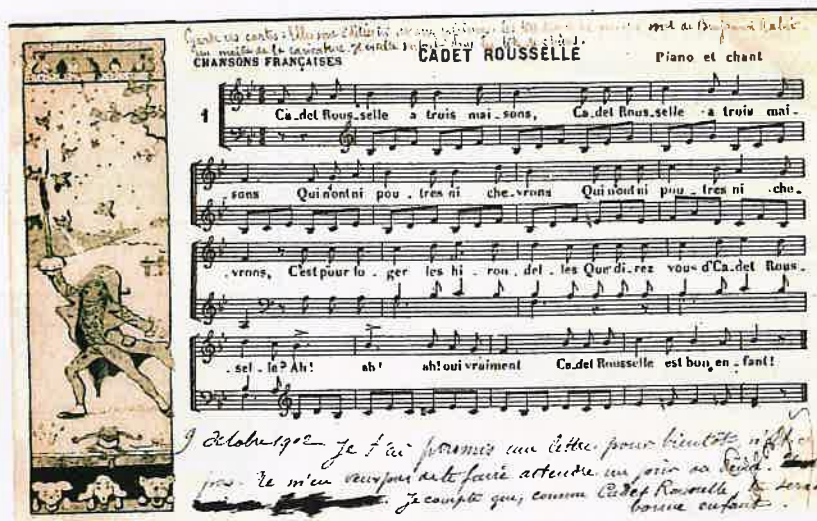 Garde ces cartes
CHANSONS FRANÇAISES
CADET ROUSSELLE
Piano et chant
1
Ca.det Rous.selle a trois mai.sons, Ca.det Rous.selle a trois mai-
sons Qui n'ont ni pou.tres ni che.vrons Qui n'ont ni pou.tres ni che.
.vrons, C'est pour lo.ger les hi.ron.del.les Que di.rez vous d'Ca.det Rous.
.sel.le? Ah! ah! ah! oui vraiment Ca.det Rousselle est bon en.fant!
9 Octobre 1902 Je t'ai promis une lettre pour bientôt
pas. Ne m'en veux pas de te faire attendre un jour ou deux.
Je compte que, comme Cadet Rousselle tu seras
bonne enfant.